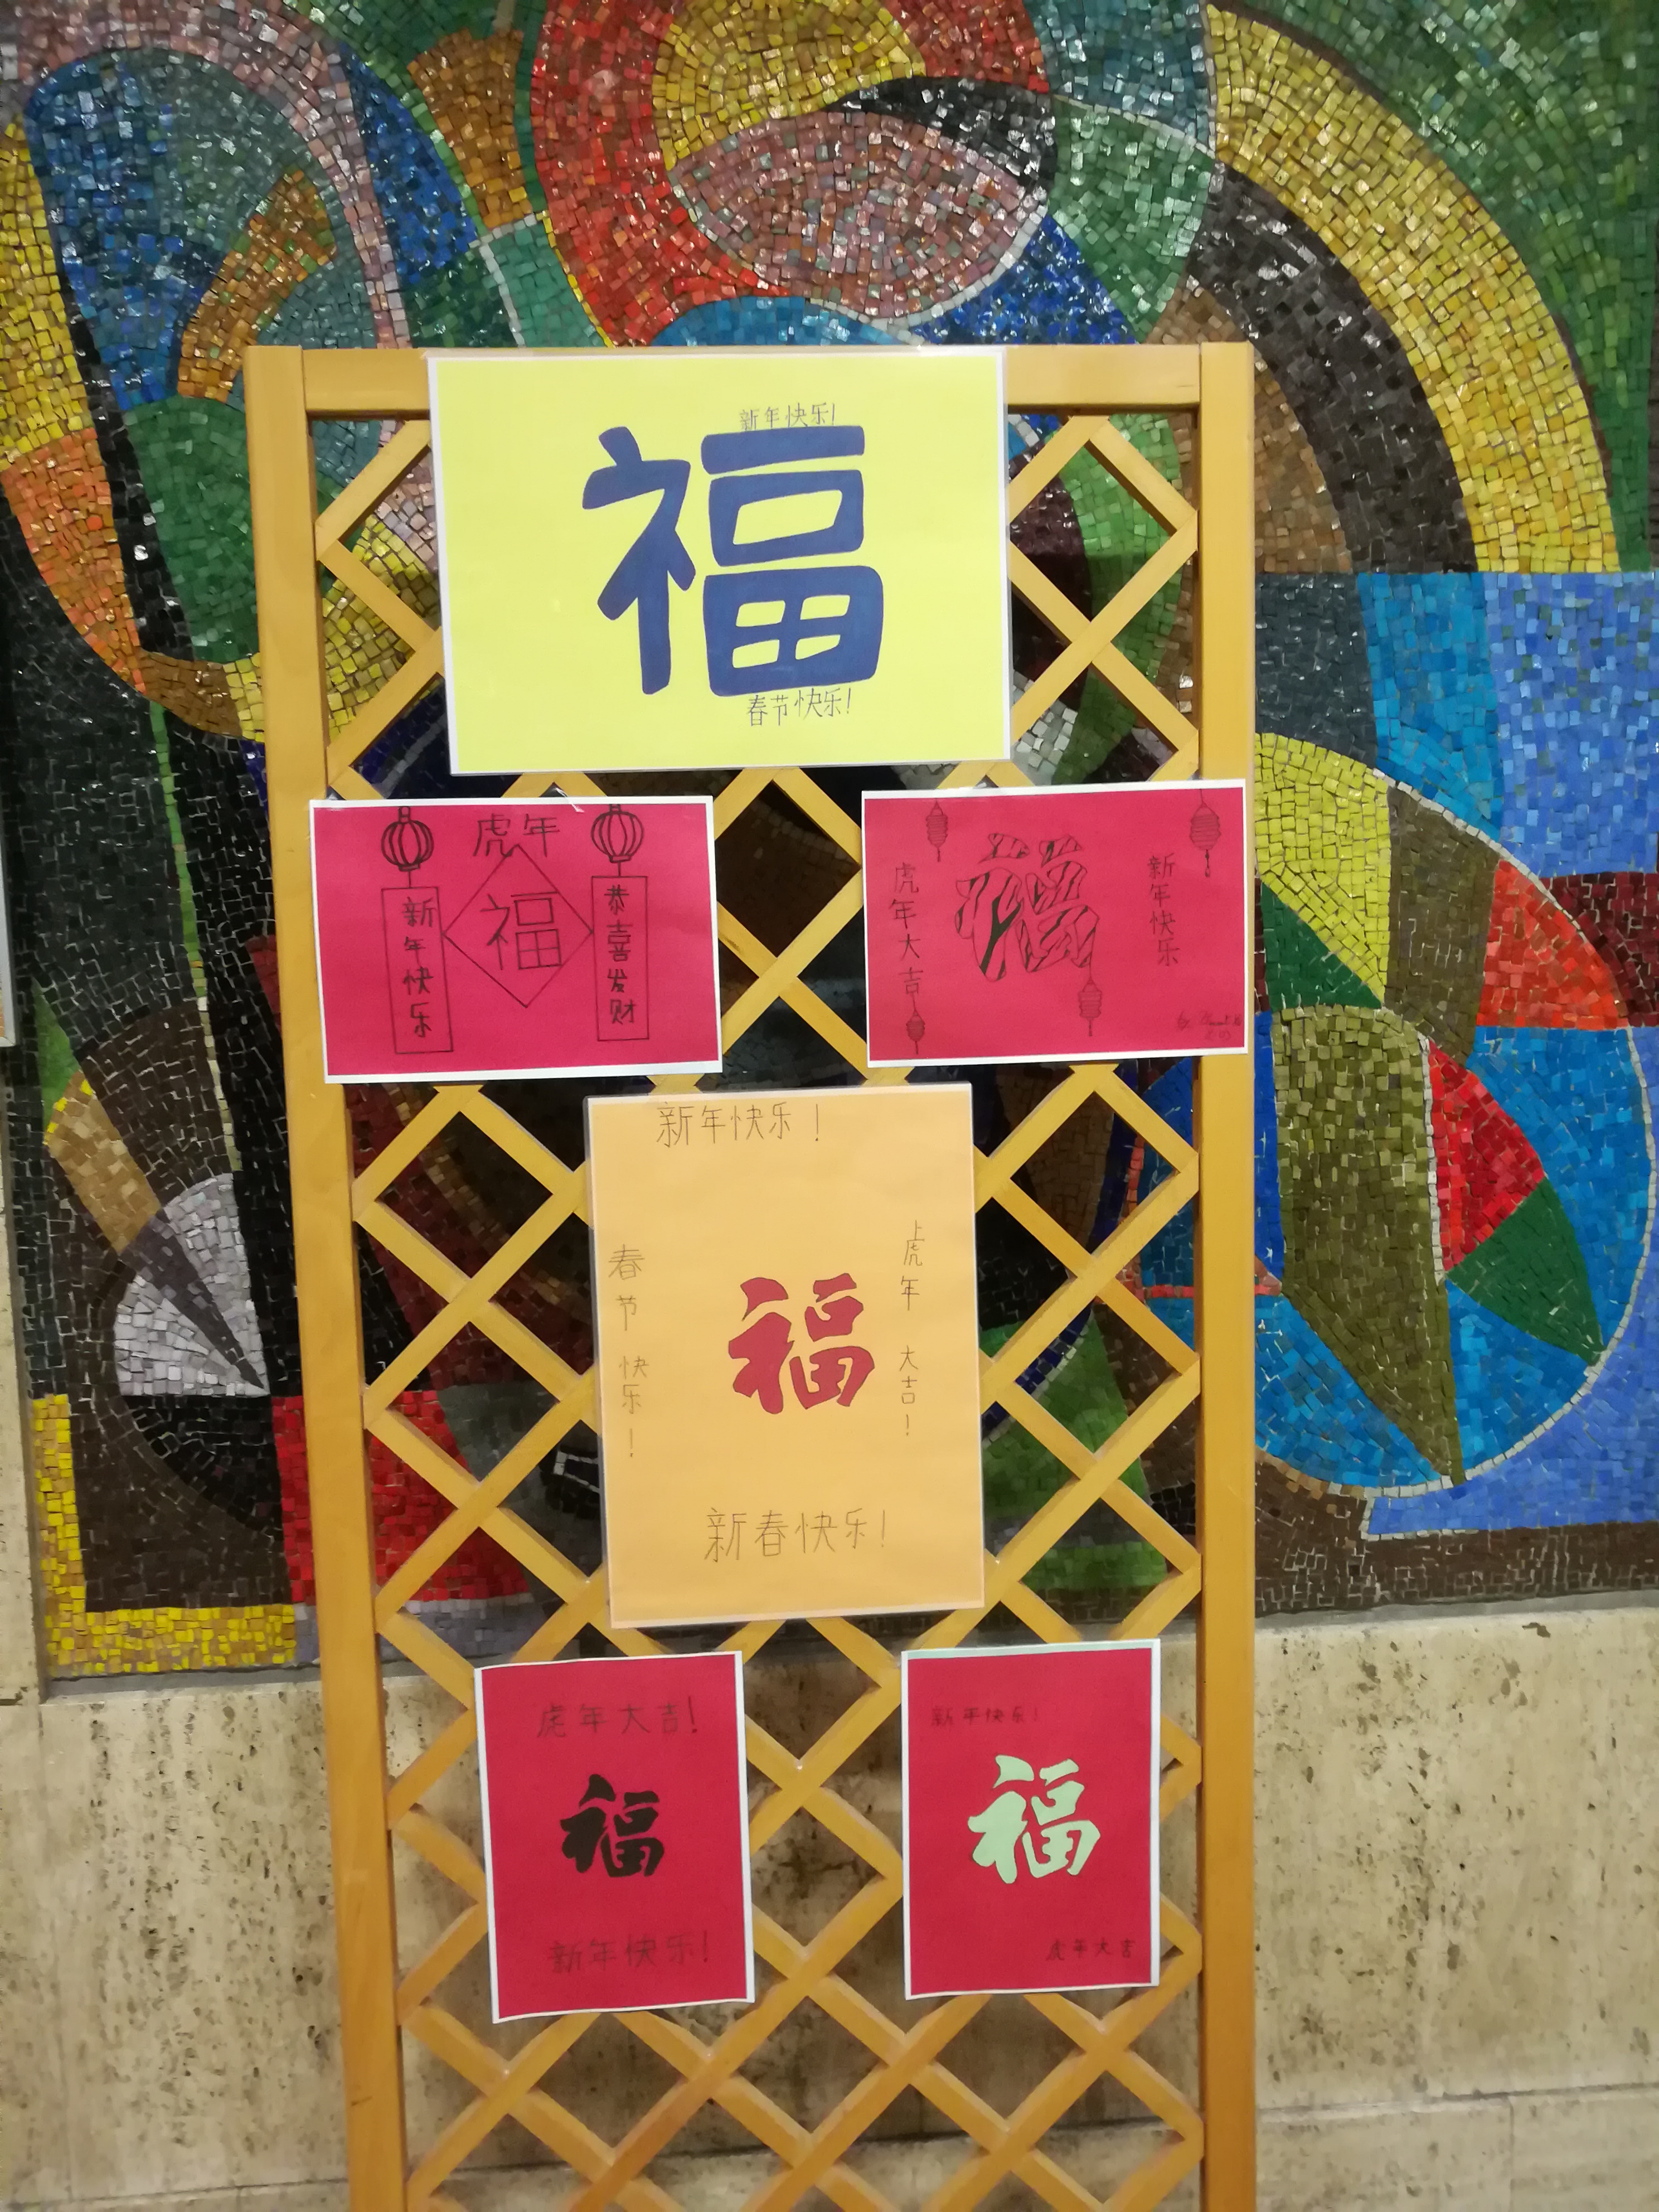 新年快乐!
福
春节快乐!
虎年
新年快乐
福
恭喜发财
虎年大吉
福
新年快乐
新年快乐!
春节快乐!
福
虎年大吉!
新春快乐!
虎年大吉!
福
新年快乐!
新年快乐!
福
虎年大吉